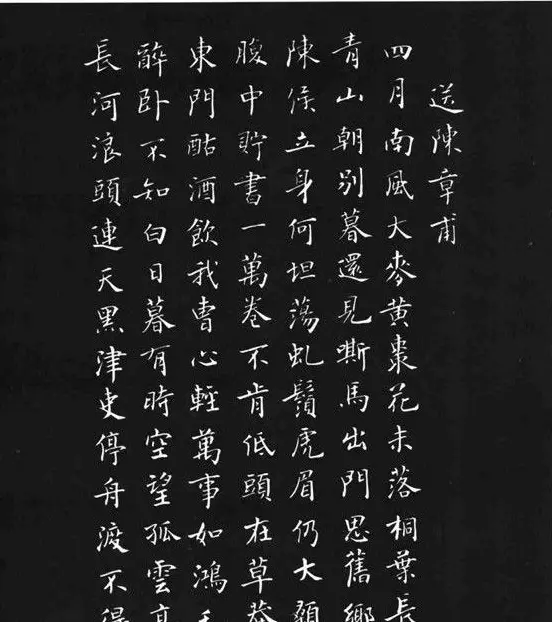 送陳章甫
四月南風大麥黃棗花未落桐葉長
青山朝別暮還見嘶馬出門思舊鄉
陳侯立身何坦蕩虬鬚虎眉仍大顙
腹中貯書一萬卷不肯低頭在草莽
東門酤酒飲我曹心輕萬事如鴻毛
醉卧不知白日暮有時空望孤雲高
長河浪頭連天黑津吏停舟渡不得